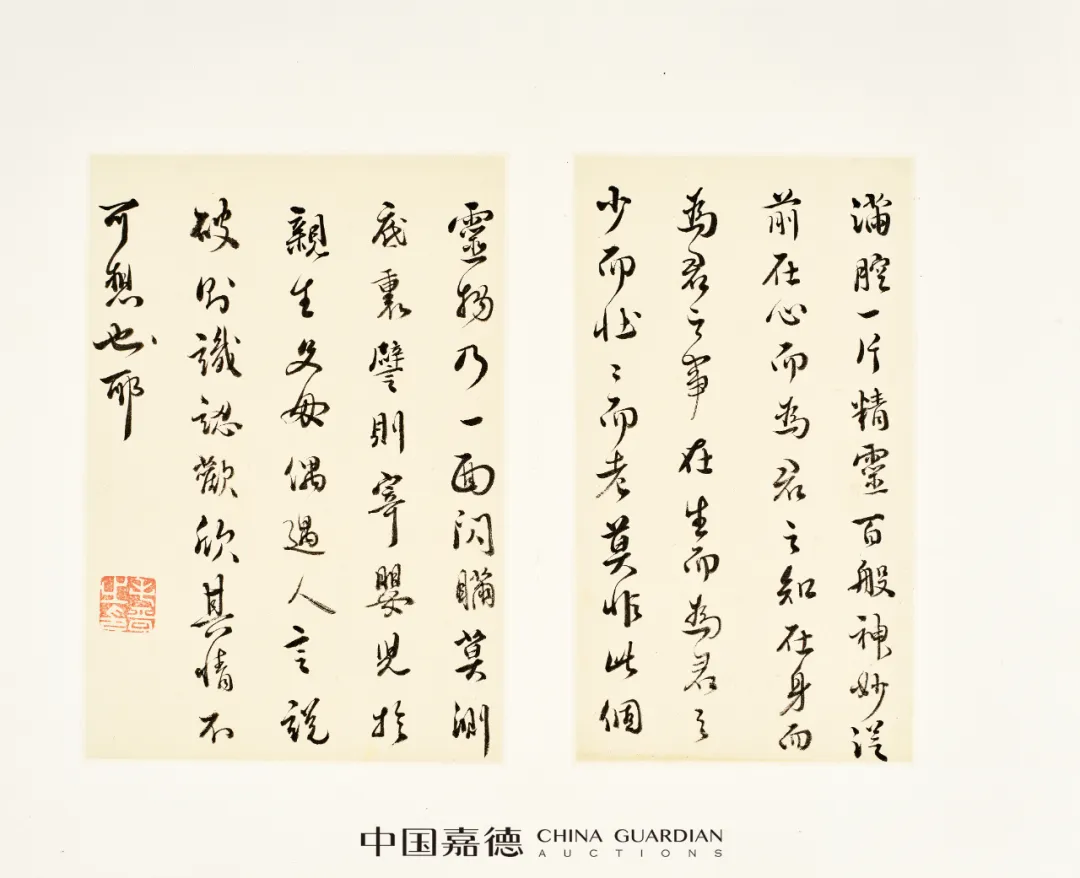 滿腔一片精靈百般神妙從
前在心而為君之知在身而
為君之事在生而為君之
少而壯〻而老莫非此個
靈物乃一面閃瞞莫測
底裏譬則寄嬰兒於
親生父母偶過人言說
破則識認歡欣其情不
可想也耶
中国嘉德 CHINA GUARDIAN
AUCTIONS